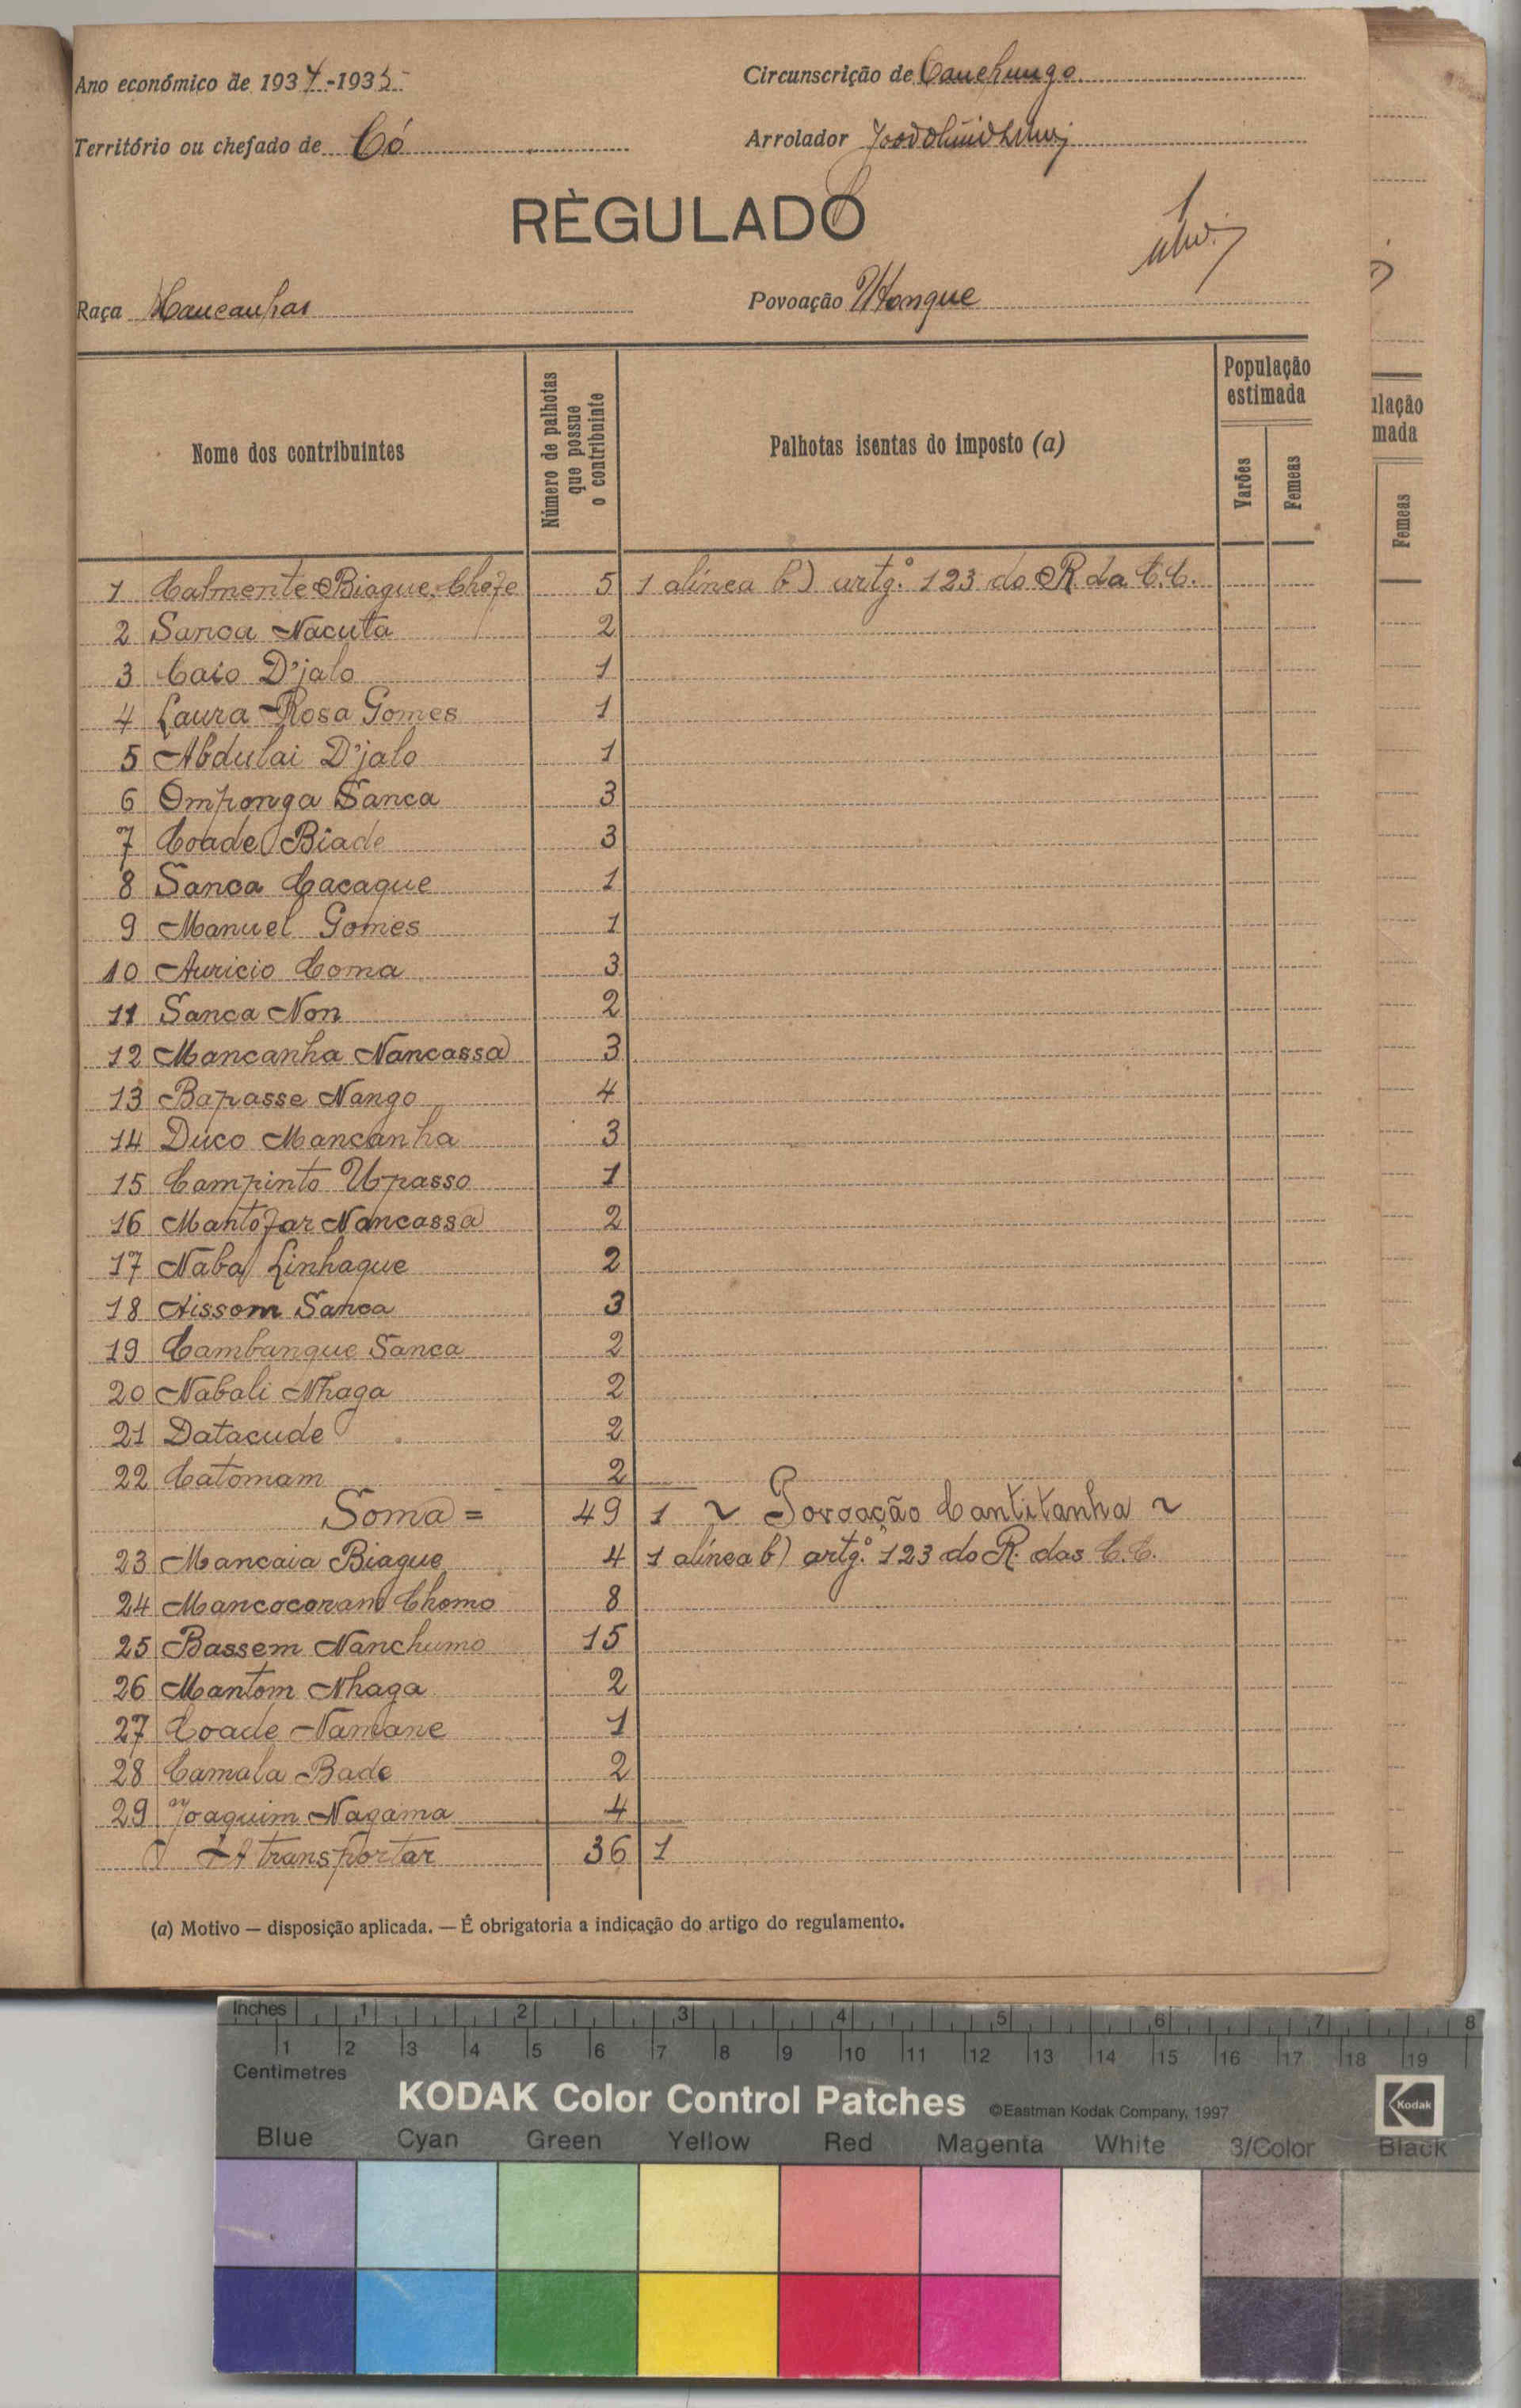 Ano económico de 1934-1935
Circunscrição de Canchungo
Território ou chefado de Có
Arrolador
RÈGULADO
Raça Mancanhas
Povoação
Nome dos contribuintes
Número de palhotas que possue o contribuinte
Palhotas isentas do imposto (a)
População estimada
Varões
Femeas
1 Calmente Biague, Chefe 5 1 alínea b) artg.º 123 do R. da C.C.
2 Sanca Nacuta 2
3 Caio D'jalo 1
4 Laura Rosa Gomes 1
5 Abdulai D'jalo 1
6 Omponga Sanca 3
7 Coade Biade 3
8 Sanca Cacaque 1
9 Manuel Gomes 1
10 Auricio Coma 3
11 Sanca Non 2
12 Mancanha Nancassa 3
13 Bapasse Nango 4
14 Duco Mancanha 3
15 Campinto Upasso 1
16 Mantofar Nancassa 2
17 Naba Linhaque 2
18 Aissom Sanca 3
19 Cambanque Sanca 2
20 Nabali Nhaga 2
21 Datacude 2
22 Catomam 2
Soma = 49 1 ~ Povoação Cantitanha ~
23 Mancaia Biague 4 1 alínea b) artg.º 123 do R. das C.C.
24 Mancocoram Chomo 8
25 Bassem Nanchumo 15
26 Mantom Nhaga 2
27 Coade Namane 1
28 Camala Bade 2
29 Joaquim Nagama 4
A transportar 36 1
(a) Motivo — disposição aplicada. — É obrigatoria a indicação do artigo do regulamento.
ulação
mada
Femeas
Inches 1 2 3 4 5 6 7 8
1 2 3 4 5 6 7 8 9 10 11 12 13 14 15 16 17 18 19
Centimetres
KODAK Color Control Patches ©Eastman Kodak Company, 1997
Kodak
Blue Cyan Green Yellow Red Magenta White 3/Color Black